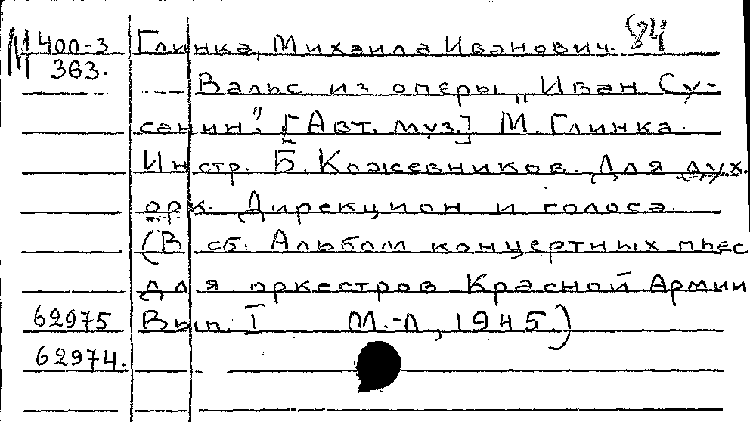 М 400-3 Глинка, Михаила Иванович. 84
363.
Вальс из оперы „Иван Су-
санин". [Авт. муз.] М. Глинка.
Инстр. Б. Кожевников. Для дух.
орк. Дирекцион и голоса
(В сб. Альбом концертных пьес
для оркестров Красной Армии
62975 Вып. I М.-Л, 1945.)
62974.